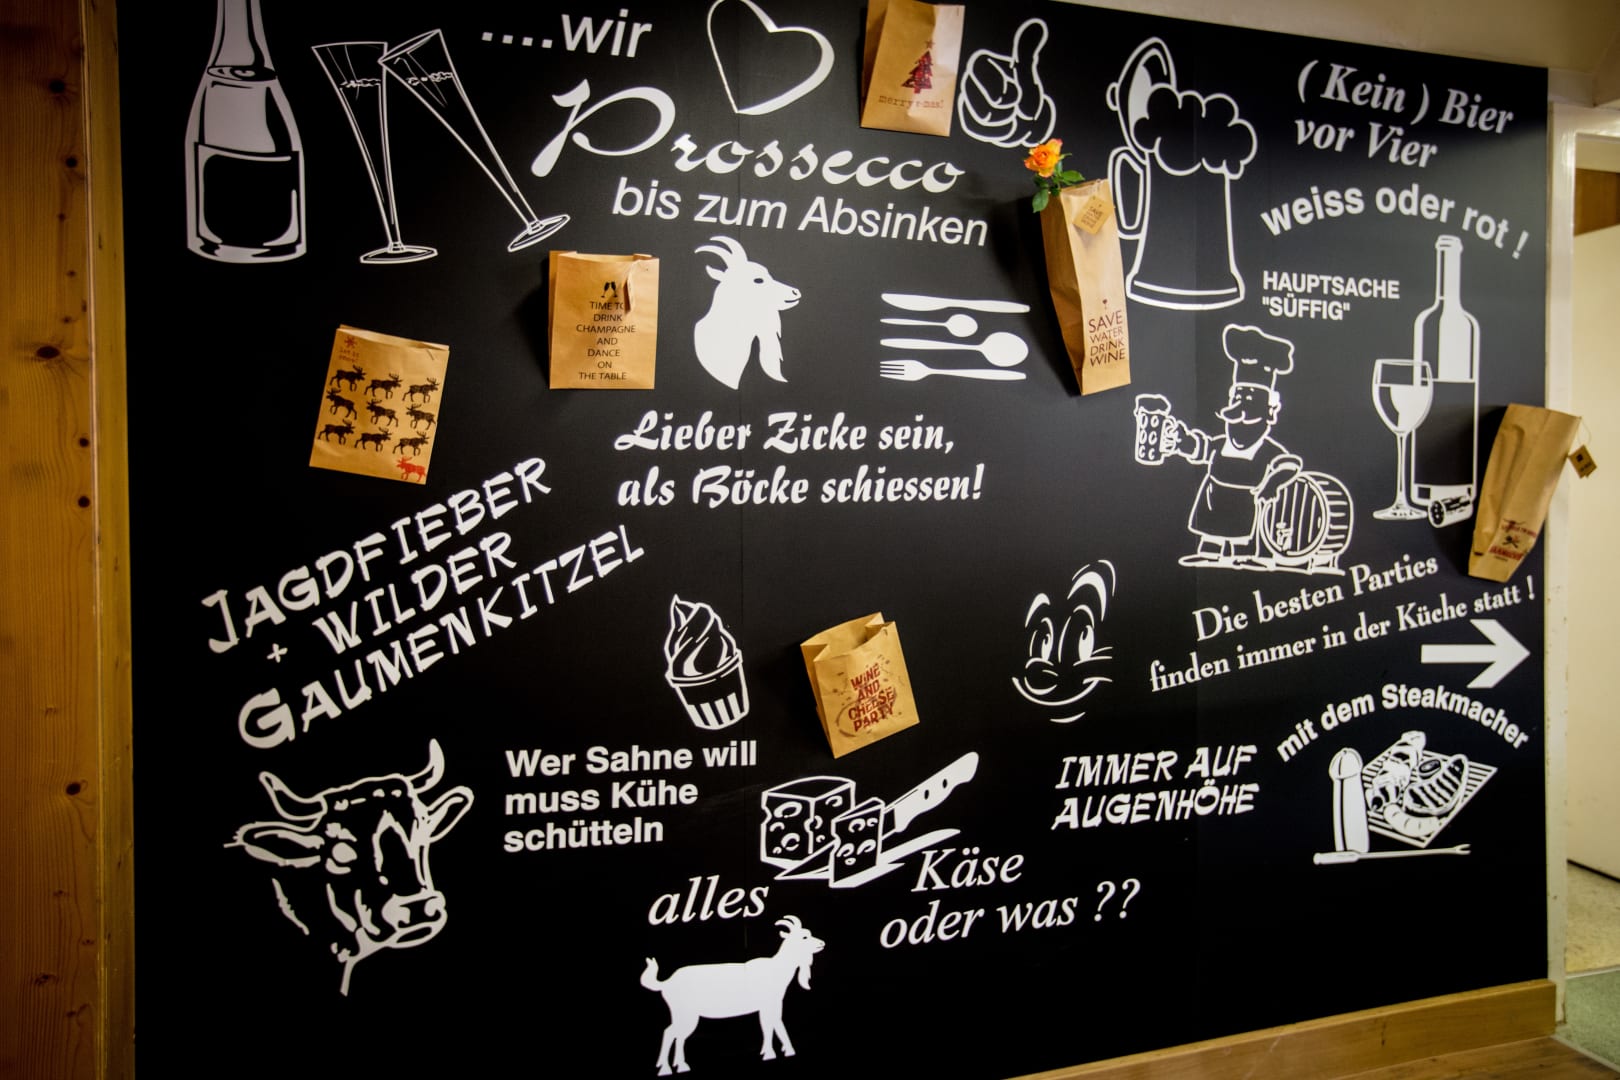 ....wir
Prossecco
bis zum Absinken
merry x-mas!
( Kein ) Bier
vor Vier
weiss oder rot !
HAUPTSACHE
"SÜFFIG"
TIME TO
DRINK
CHAMPAGNE
AND
DANCE
ON
THE TABLE
SAVE
WATER
DRINK
WINE
Lieber Zicke sein,
als Böcke schiessen!
JAGDFIEBER
+ WILDER
GAUMENKITZEL
WINE
AND
CHEESE
PARTY
Die besten Parties
finden immer in der Küche statt !
mit dem Steakmacher
Wer Sahne will
muss Kühe
schütteln
IMMER AUF
AUGENHÖHE
alles
Käse
oder was ??